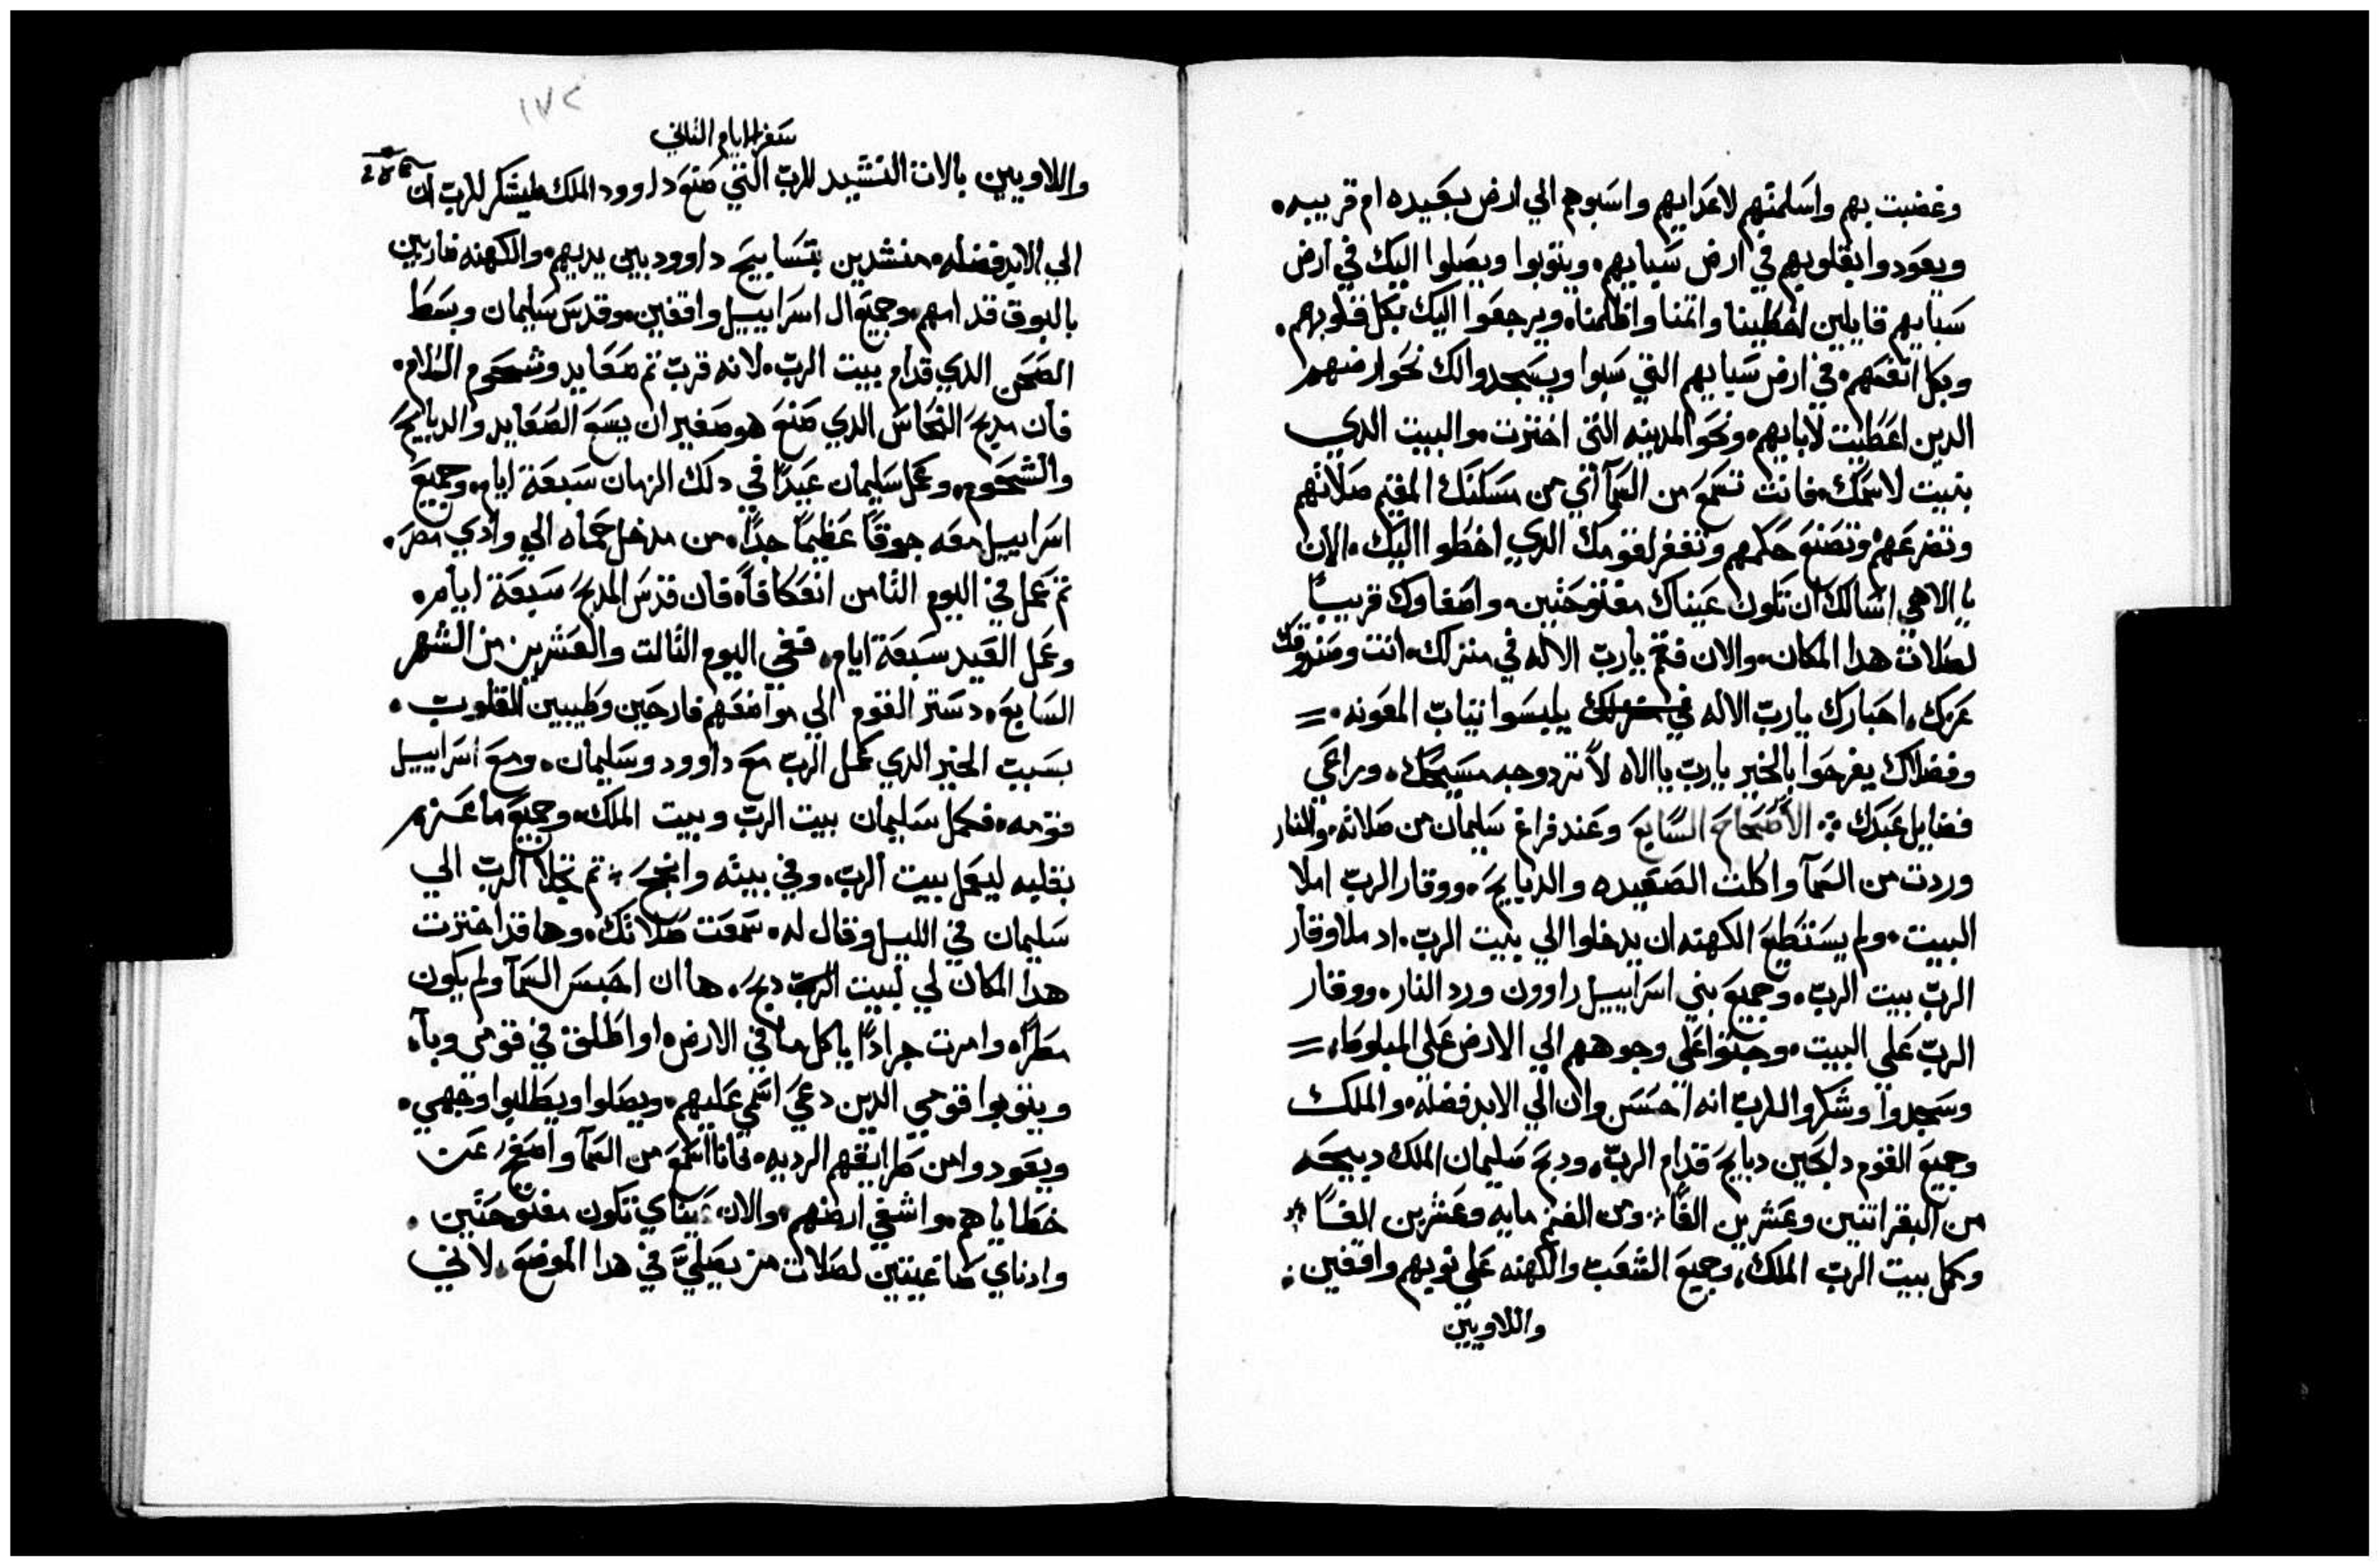 وغضبت بهم واسلمتهم لاعدايهم واسبوهم الي ارض بعيده ام قريبه.
ويعودوا بقلوبهم في ارض سبايهم. ويتوبوا ويصلوا اليك في ارض
سبايهم قايلين اخطينا واتمنا واظلمنا. ويرجعوا اليك بكل قلوبهم.
وبكل انفسهم. في ارض سبايهم التي سبوا ويسجدوا لك نحو ارضهم
الدين اعطيت لابايهم. ونحو المدينه التي اخترت. والبيت الدي
بنيت لاسمك. فانت تسمع من السمآ اي من مسكنك المقيم صلاتهم
وتضرعهم وتصنع حكمهم وتغفر لقومك الدي اخطوا اليك. الان
يا الاهي اسالك ان تكون عيناك مفتوحتين. واصغاوك قريبًا
لصلاة هدا المكان. والان فقم يارب الاله في منزلك. انت وصندوقك
عزك. احبارك يارب الاله يلبسوا تياب المعونه. =
وفضلاك يفرحوا بالخير يارب ياالاه لا تردوجه مسيحك. وراعي
فضايل عبدك ⁘ الأصحاح السابع وعند فراغ سليمان من صلاته. والنار
وردت من السمآ واكلت الصعيده والدبايح. ووقار الرب املا
البيت. ولم يستطيع الكهنه ان يدخلوا الي بيت الرب. اد ملا وقار
الرب بيت الرب. وجميع بني اسراييل راوون ورد النار. ووقار
الرب علي البيت. وجتوا علي وجوههم الي الارض علي المبلوط. =
وسجدوا وشكروا للرب انه احسن وان الي الابد فضله. والملك
وجميع القوم دابحين دبايح قدام الرب. ودبح صليمان الملك دبيحه
من البقر اتنين وعشرين الفًا ⁘ ومن الغنم مايه وعشرين الفًا
وكمل بيت الرب الملك. وجميع الشعب والكهنه علي نوبهم واقفين.
واللاويين
١٧٢
سفر الايام التاني
واللاويين بالات النشيد للرب التي صنع داوود الملك ليشكر للرب ان
الي الابد فضله. منشدين بتسابيح داوود بين يديهم. والكهنه ضاربين
بالبوق قدامهم. وجميع ال اسراييل واقفين. وقدس سليمان وسط
الصحن الدي قدام بيت الرب. لانه قرب تم صعايد وشحوم السلام.
فان مدبح النحاس الدي صنع هو صغير ان يسع الصعايد والدبايح
والشحوم. وعمل سليمان عيدًا في دلك الزمان سبعة ايام. وجميع
اسراييل معه جوقًا عظيمًا جدًا. من مدخل حماه الي وادي مصر.
تم عمل في اليوم التامن انعكافاً. فان قدس المدبح سبعة ايام.
وعمل العيد سبعة ايام. ففي اليوم التالت والعشرين من الشهر
السابع. دستر القوم الي مواضعهم فارحين وطيبين القلوب.
بسبب الخير الدي عمل الرب مع داوود وسليمان. ومع اسراييل
قومه. فكمل سليمان بيت الرب وبيت الملك. وجميع ما عزم
بقلبه ليعمل بيت الرب. وفي بيته وانجح ⁘ تم تجلا الرب الي
سليمان في الليل وقال له. سمعت صلاتك. وها قد اخترت
هدا المكان لي لبيت الرب دبح. ها ان احبس السمآ ولم يكون
مطرًا. وامرت جرادًا ياكل ما في الارض. او اطلق في قومي وبآ.
ويتوبوا قومي الدين دعي اسمي عليهم. ويصلوا ويطلبوا وجهي.
ويعودوا من طرايقهم الرديه. فانا اسمع من السمآ واصفح عن
خطاياهم. واشفي ارضهم. والان عيناي تكون مفتوحتين.
وادناي صاغيتين لصلاة من يصلي في هدا الموضع. لاني